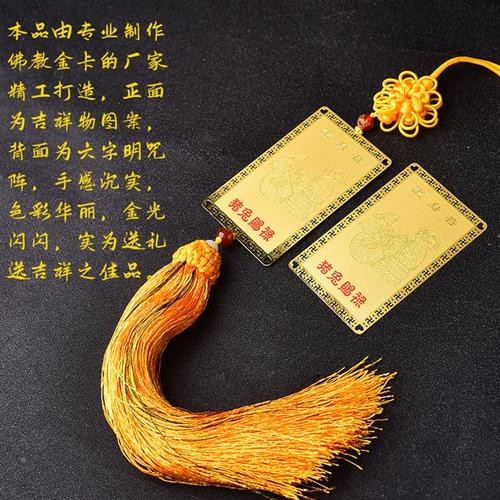 本品由专业制作
佛教金卡的厂家
精工打造，正面
为吉祥物图案，
背面为六字明咒
阵，手感沉实，
色彩华丽，金光
闪闪，实为送礼
送吉祥之佳品。
猪兔赐禄
猪兔赐禄